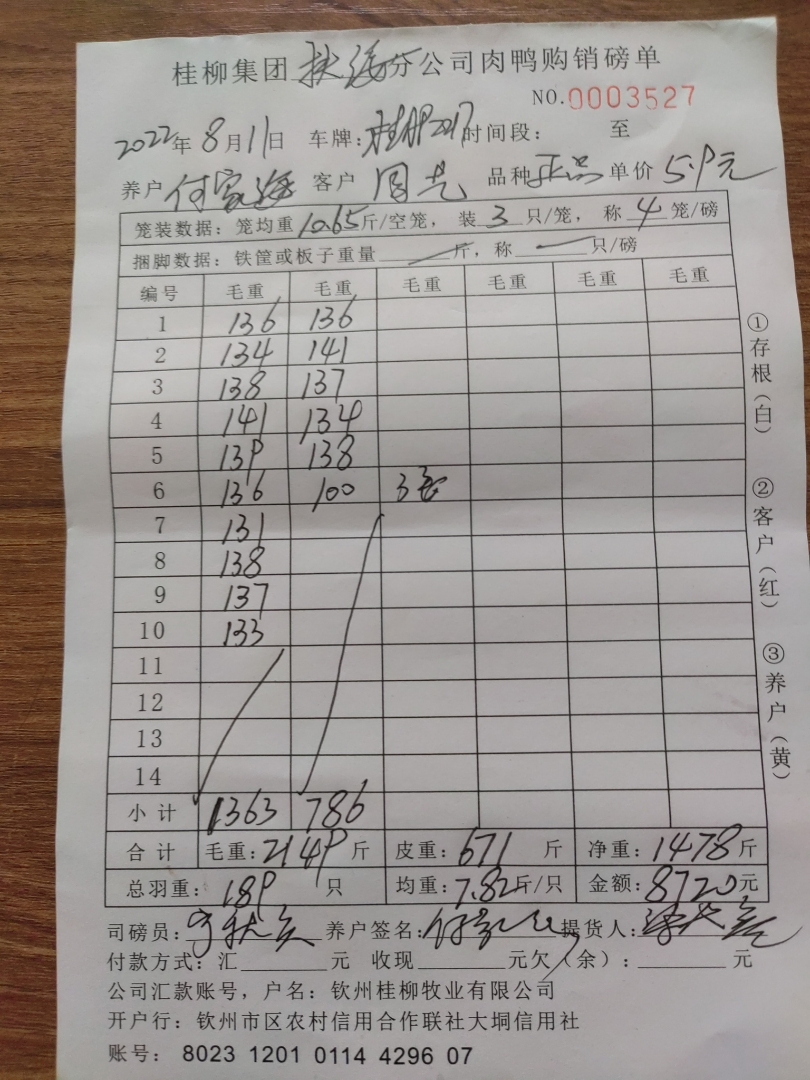 桂柳集团 分公司肉鸭购销磅单
NO.0003527
2022年8月11日 车牌: 2017时间段: 至
养户 付家海 客户 周 品种 正品 单价 5.9元
笼装数据: 笼均重10.65斤/空笼, 装3只/笼, 称4笼/磅
捆脚数据: 铁筐或板子重量 斤, 称 只/磅
编号 毛重 毛重 毛重 毛重 毛重 毛重
1 136 136
2 134 141
3 138 137
4 141 134
5 139 138
6 136 100 3
7 131
8 138
9 137
10 133
11
12
13
14
小计 1363 786
合计 毛重:2149斤 皮重:671斤 净重:1478斤
总羽重:189只 均重:7.82斤/只 金额:8720元
司磅员: 养户签名: 提货人:
付款方式:汇 元 收现 元欠(余): 元
公司汇款账号,户名:钦州桂柳牧业有限公司
开户行:钦州市区农村信用合作联社大垌信用社
账号: 8023 1201 0114 4296 07
①存根(白)
②客户(红)
③养户(黄)